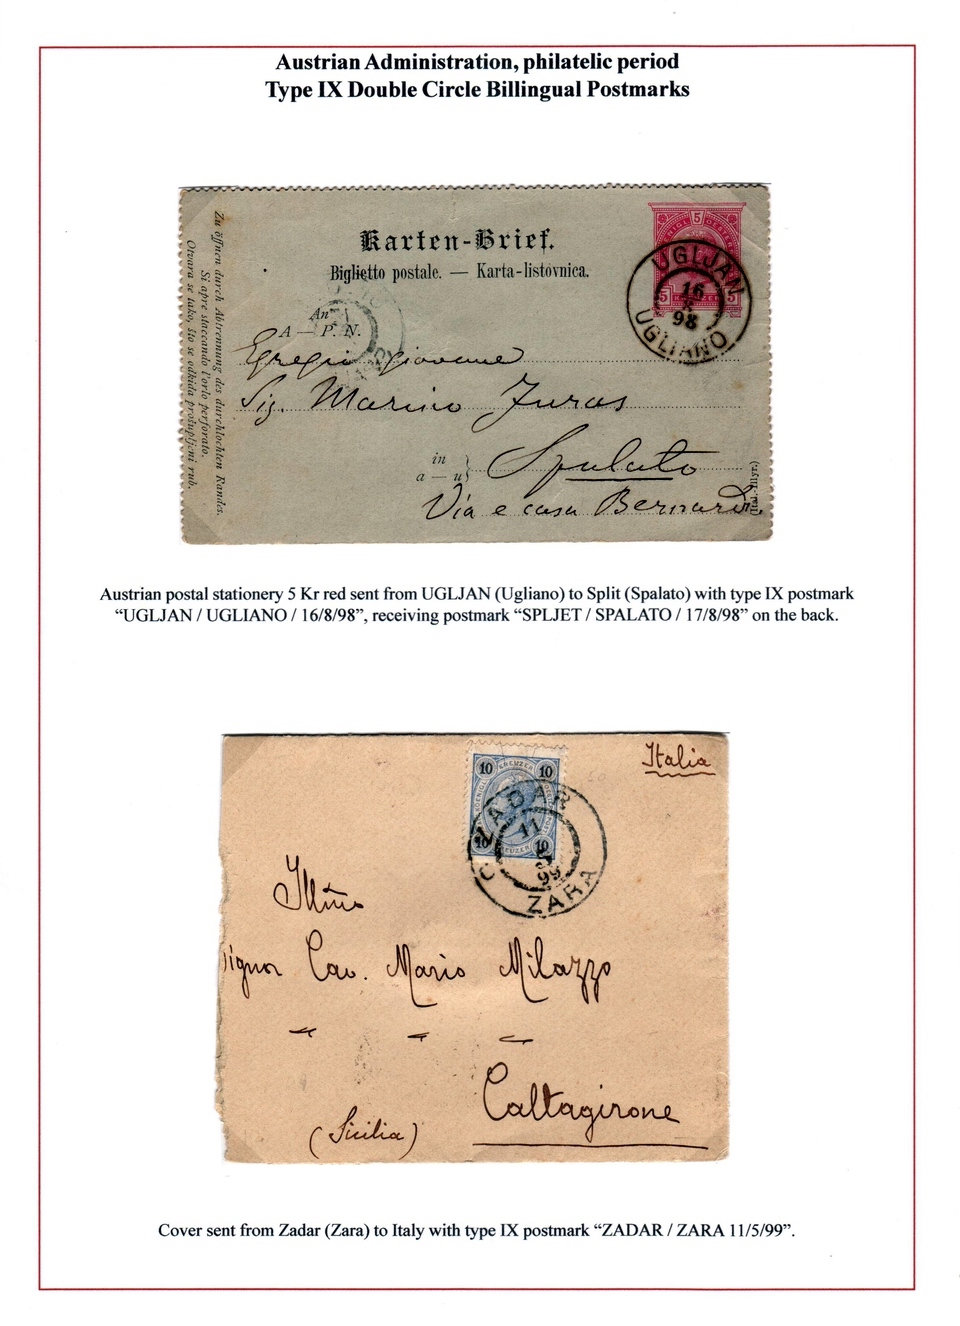 Austrian Administration, philatelic period
Type IX Double Circle Billingual Postmarks
Zu öffnen durch Abtrennung des durchlochten Randes.
Si apre staccando l'orlo perforato.
Otvara se tako, što se odkida prošupljeni rub.
Karten-Brief.
Biglietto postale. — Karta-listovnica.
5
5 5
UGLJAN
16
98
UGLIANO
An
A — P. N.
Egregio giovane
Sig. Marino Juras
in
a — u
Spalato
Via e casa Bernardi
(Ital. Illyr.)
Austrian postal stationery 5 Kr red sent from UGLJAN (Ugliano) to Split (Spalato) with type IX postmark
“UGLJAN / UGLIANO / 16/8/98”, receiving postmark “SPLJET / SPALATO / 17/8/98” on the back.
Italia
10 10
KREUZER
10 10
KREUZER
C ZADAR
11
5
99
ZARA
Illmo
Signor Cav. Mario Milazzo
Caltagirone
(Sicilia)
Cover sent from Zadar (Zara) to Italy with type IX postmark “ZADAR / ZARA 11/5/99”.